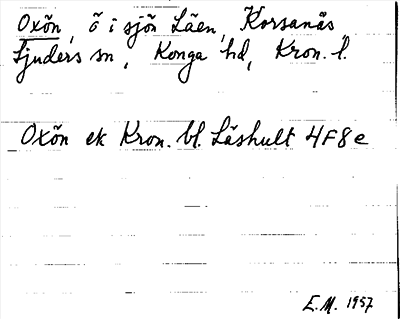 Oxön, ö i sjön Läen, Korsanäs,
Ljuders sn, Konga hd, Kron. l.
Oxön ek Kron. bl. Låshult 4F8e
E.M. 1957